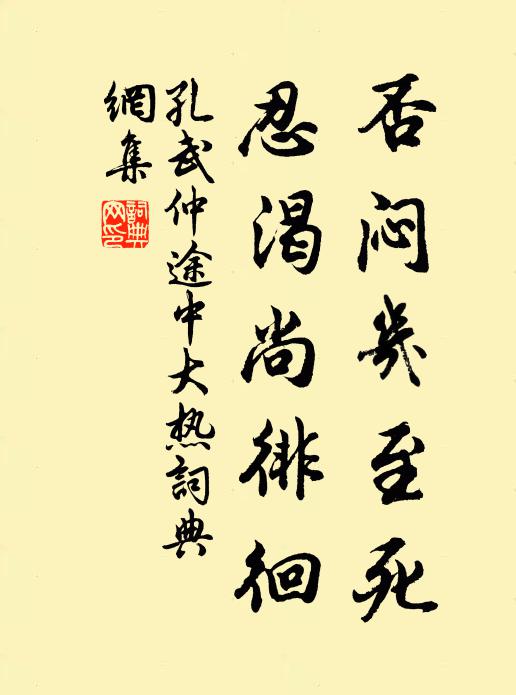 否闷幾至死
忍渴尚徘徊
孔武仲途中大热詞典
網集
詞典
网印